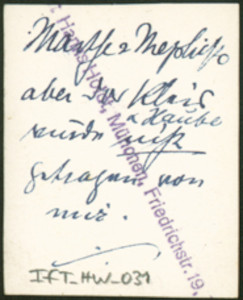 Marthe & Mephisto
aber das Kleid
& Haube
wurde nicht
getragen von
mir.
Hans Holdt, München, Friedrichstr. 19.
IfT_HW_031